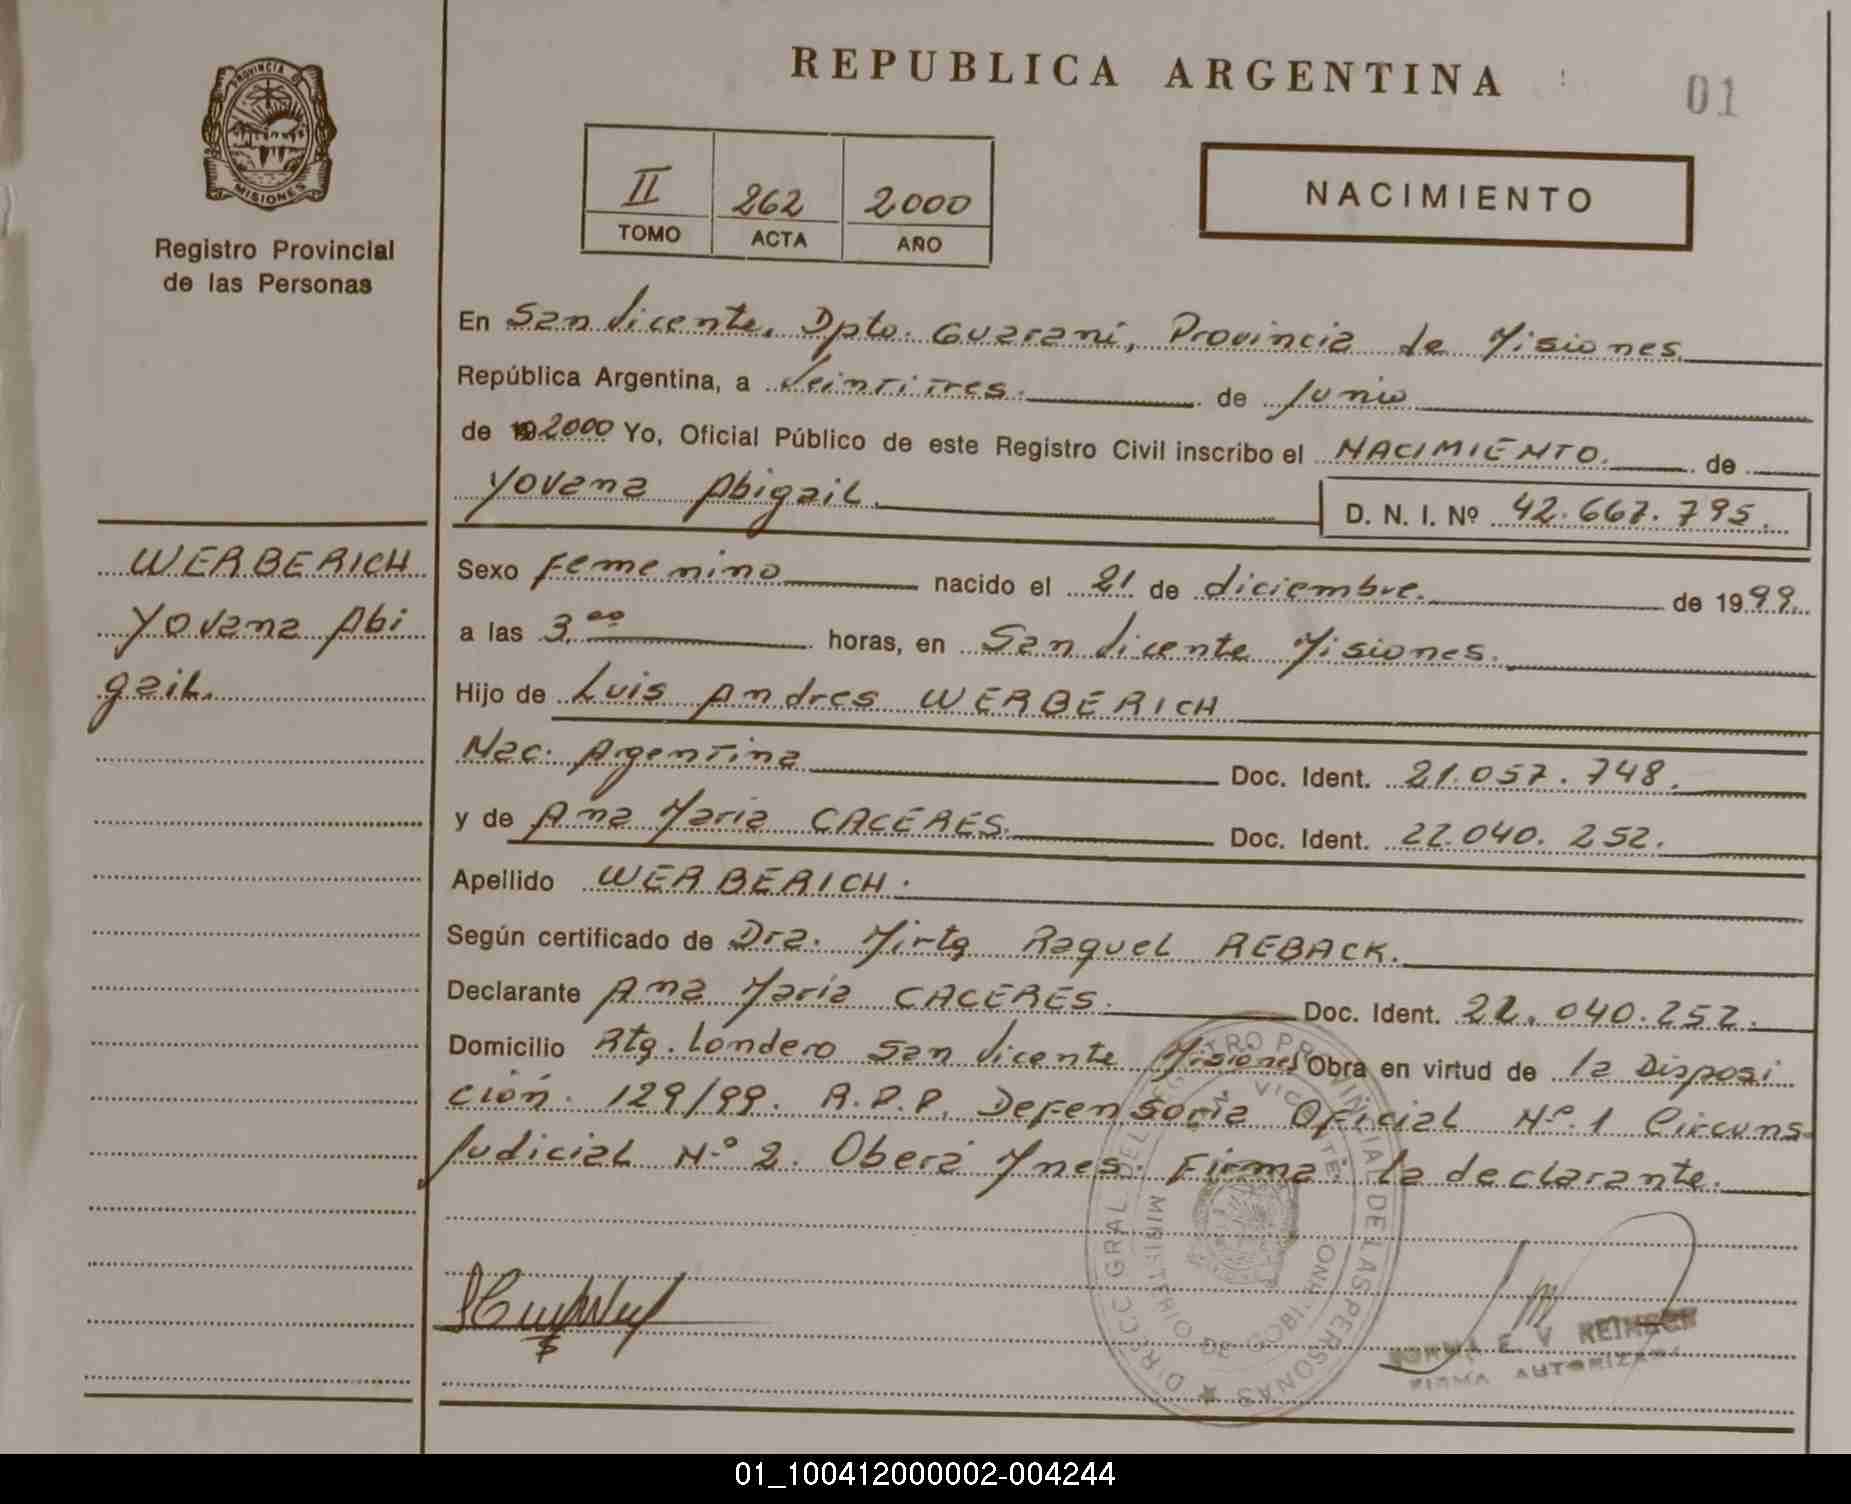 REPUBLICA ARGENTINA
01
PROVINCIA DE
MISIONES
Registro Provincial
de las Personas
II 262 2000
TOMO ACTA AÑO
NACIMIENTO
En San Vicente, Dpto. Guaraní, Provincia de Misiones
República Argentina, a Veintitres. de Junio
de 19 2000 Yo, Oficial Público de este Registro Civil inscribo el NACIMIENTO. de
Yovana Abigail. D. N. I. Nº 42.667.795.
WERBERICH
Yovana Abi
gail.
Sexo Femenino nacido el 21 de diciembre. de 1999.
a las 3.00 horas, en San Vicente Misiones.
Hijo de Luis Andres WERBERICH
Nac. Argentina Doc. Ident. 21.057.748.
y de Ana Maria CACERES. Doc. Ident. 22.040.252.
Apellido WERBERICH.
Según certificado de Dra. Mirta Raquel REBACK.
Declarante Ana Maria CACERES. Doc. Ident. 22.040.252.
Domicilio Rtg. Londero San Vicente Misiones Obra en virtud de la Disposi
ción. 129/99. R.P.P. Defensoria Oficial Nº.1 Circuns
Judicial Nº 2. Oberá Mnes. Firma: la declarante.
DIRECC GRAL DEL REGISTRO PROVINCIAL DE LAS PERSONAS
SAN VICENTE
MINISTERIO DE GOBIERNO
NORMA E. V. REIMSEN
FIRMA AUTORIZADA
01_100412000002-004244